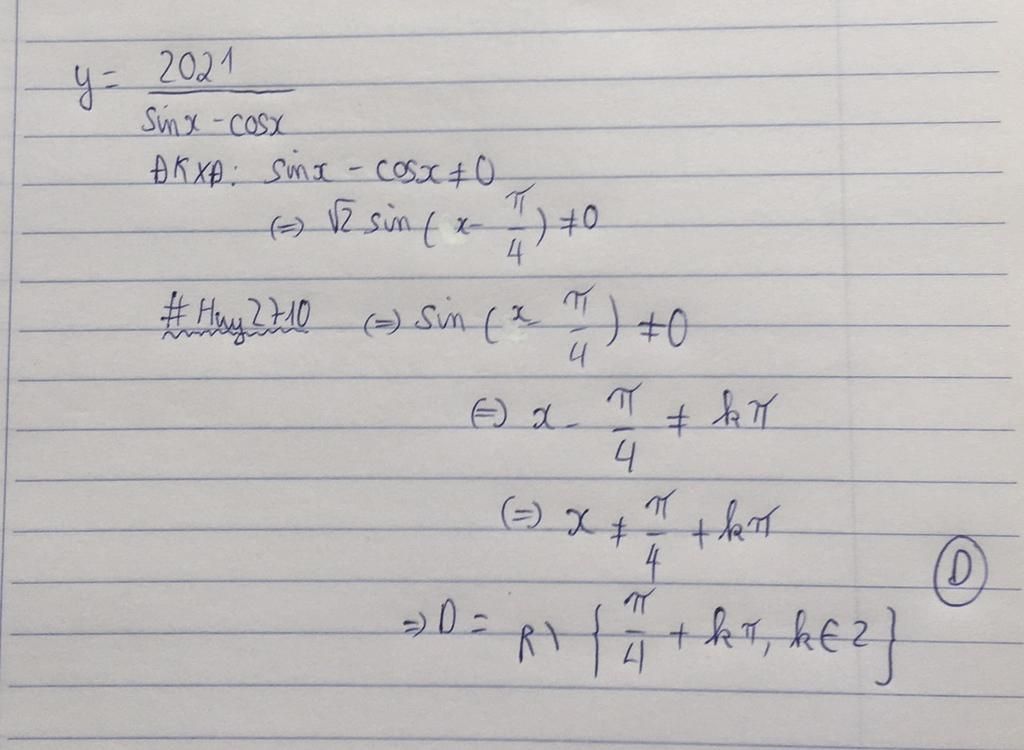 y = 2021 / sinx - cosx
ĐKXĐ: sinx - cosx ≠ 0
(=) √2 sin( x - π/4 ) ≠ 0
#Huy2710 (=) sin ( x - π/4 ) ≠ 0
(=) x - π/4 ≠ kπ
(=) x ≠ π/4 + kπ
D
=> D = R \ { π/4 + kπ, k ∈ Z }